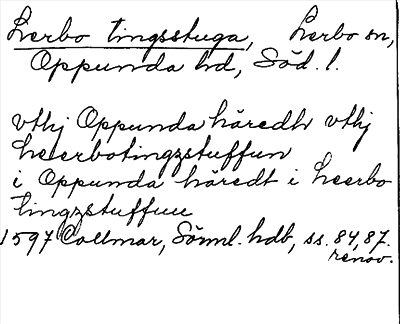 Lerbo tingsstuga, Lerbo sn,
Oppunda hd, Söd. l.
vthj Oppunda häredh vthj
Leerbotingzstuffun
i Oppunda häredt i Leerbo
tingzstuffuu
1597 Collmar, Sörml. hdb, ss. 84, 87.
renov.